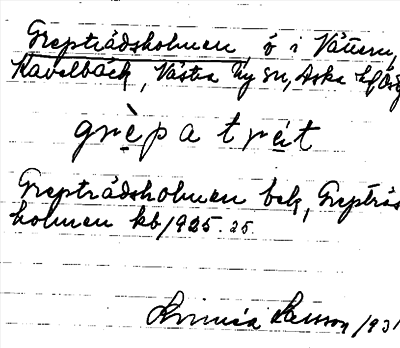 Greptrådsholmen, ö i Vättern,
Kavelbäck, Västra Ny sn, Aska hd, Ög
grepa trät
Greptrådsholmen bek, Greptrås
holmen kb/1925. 25.
Linnéa Larsson/931